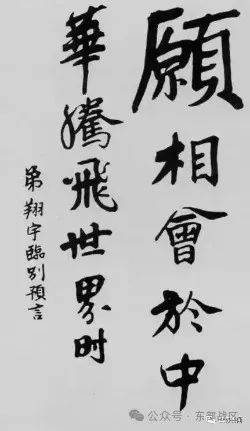 願相會於中
華騰飛世界时
弟翔宇臨别預言
公众号·东部战区